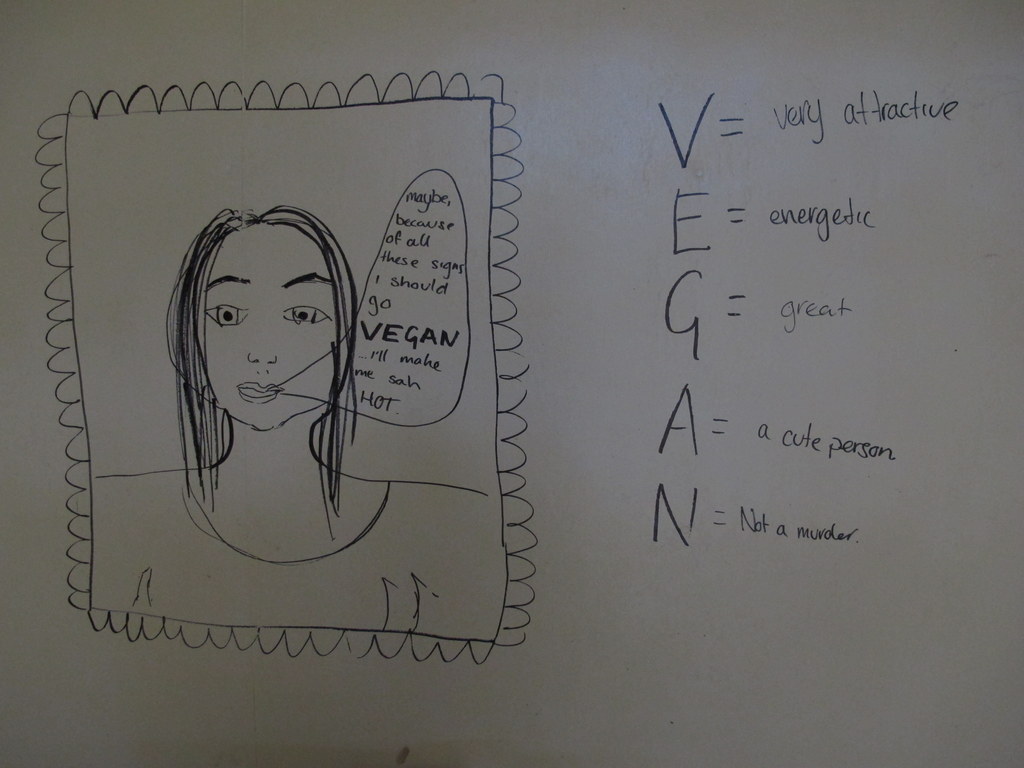 maybe,
because
of all
these signs
I should
go
VEGAN
...I'll make
me sah
HOT.
V = very attractive
E = energetic
G = great
A = a cute person
N = Not a murder.